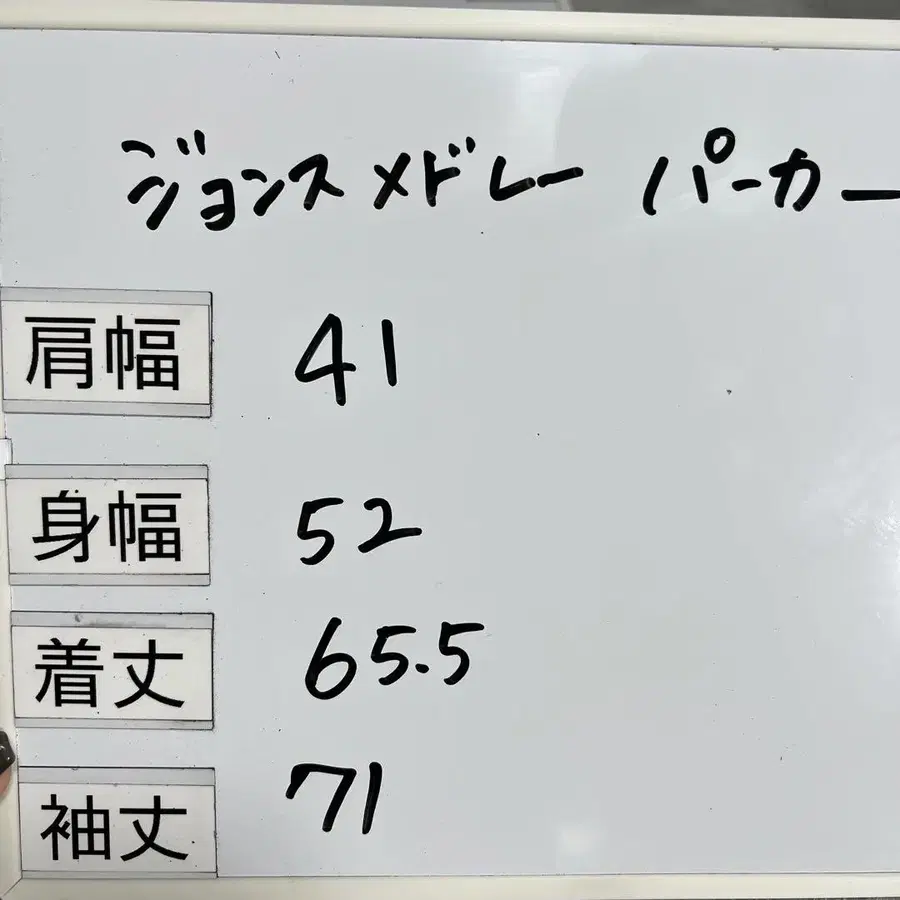 ジョンスメドレー パーカー
肩幅 41
身幅 52
着丈 65.5
袖丈 71